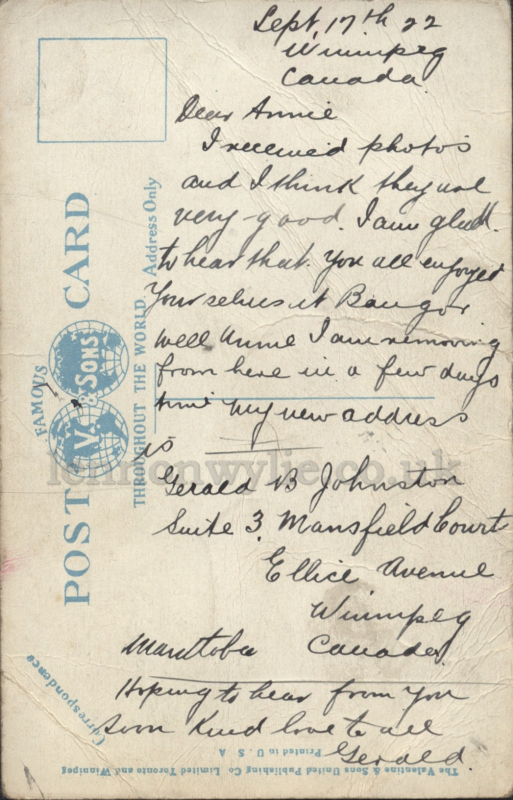 Sept 17th 22
Winnipeg
Canada.
Dear Annie
I received photos
and I think they are
very good. I am glad
to hear that you all enjoyed
yourselves at Bangor
well Annie I am removing
from here in a few days
time my new address
is
Gerald B Johnston
Suite 3. Mansfield Court
Ellice Avenue
Winnipeg
Manitoba Canada.
Hoping to hear from you
soon Kind love to all
Gerald.
POST CARD
FAMOUS
V. & SONS
THROUGHOUT THE WORLD
Address Only
Correspondence
Printed in U. S. A
The Valentine & Sons United Publishing Co. Limited Toronto and Winnipeg
lennonwylie.co.uk